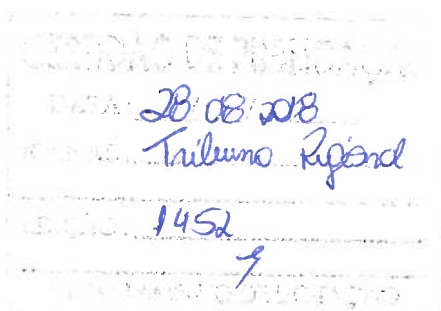 28 08 2018
Tribuna Regional
1452